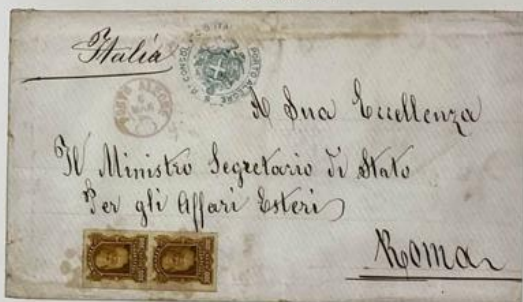 Italia
PORTO ALEGRE
PORTO ALEGRE
A Sua Eccellenza
Il Ministro Segretario di Stato
Per gli Affari Esteri
Roma